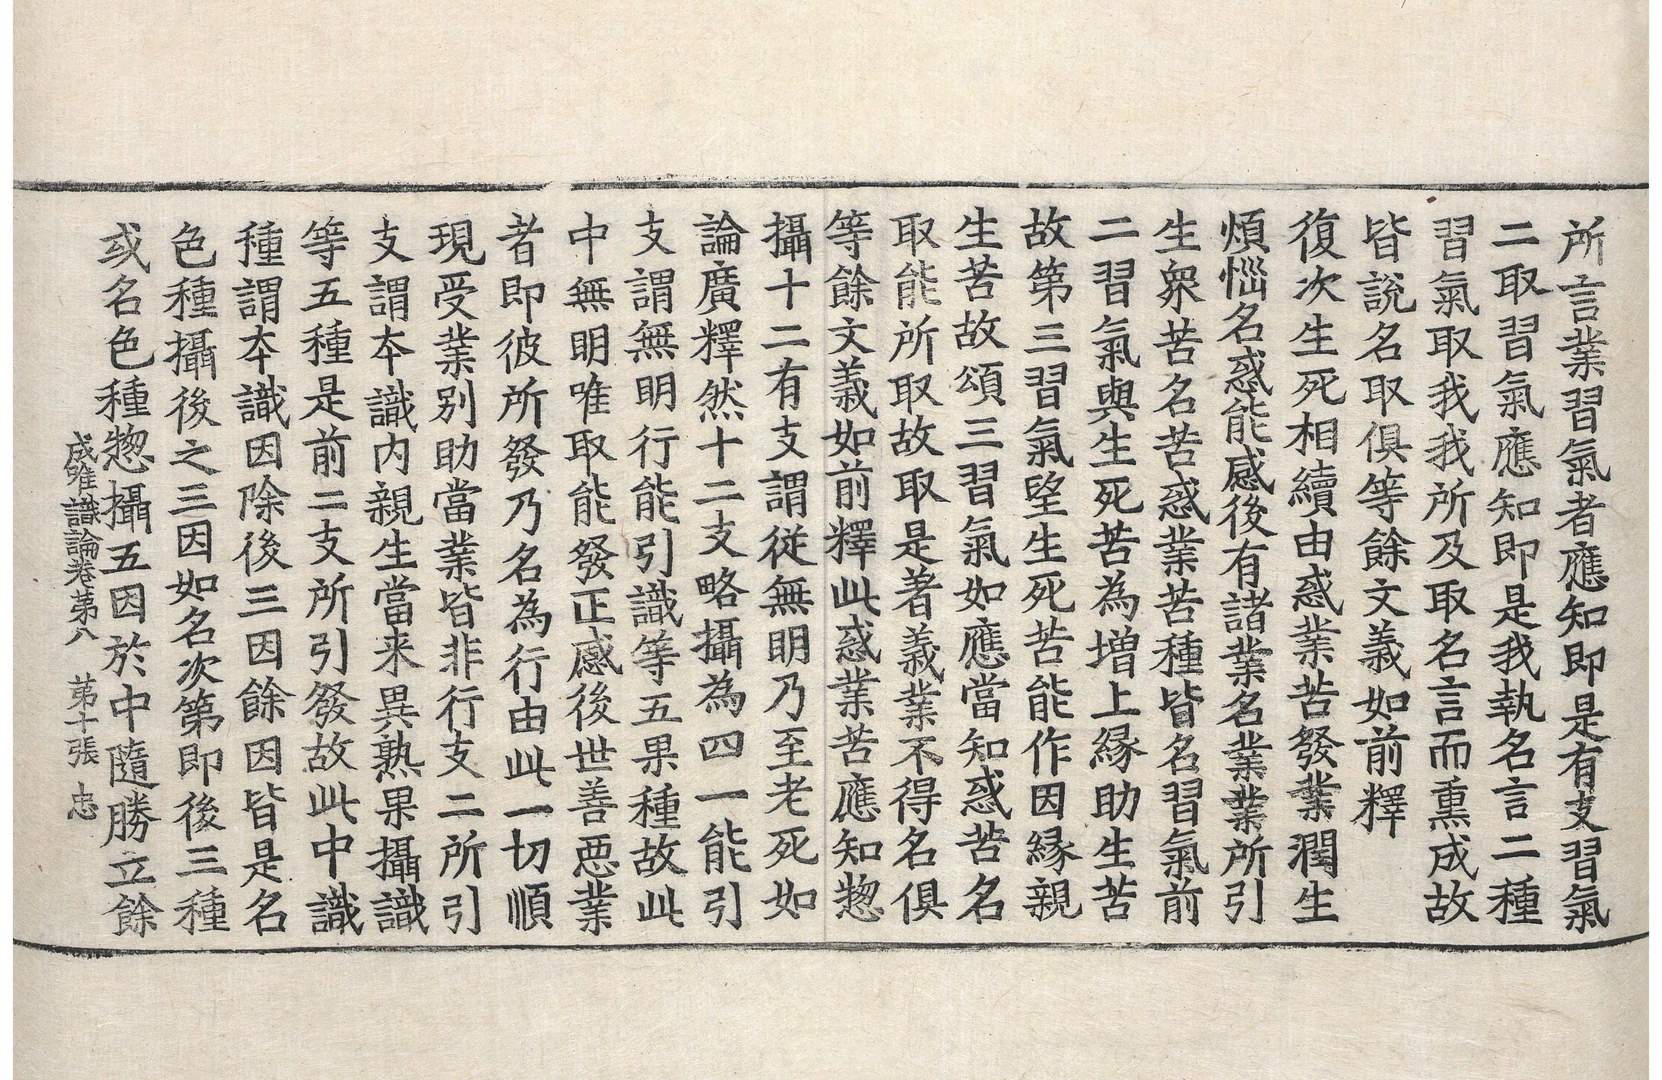 所言業習氣者應知即是有支習氣
二取習氣應知即是我執名言二種
習氣取我我所及取名言而熏成故
皆說名取俱等餘文義如前釋
復次生死相續由惑業苦發業潤生
煩惱名惑能感後有諸業名業業所引
生衆苦名苦惑業苦種皆名習氣前
二習氣與生死苦為增上緣助生苦
故第三習氣望生死苦能作因緣親
生苦故頌三習氣如應當知惑苦名
取能所取故取是著義業不得名俱
等餘文義如前釋此惑業苦應知惣
攝十二有支謂從無明乃至老死如
論廣釋然十二支略攝為四一能引
支謂無明行能引識等五果種故此
中無明唯取能發正感後世善惡業
者即彼所發乃名為行由此一切順
現受業別助當業皆非行支二所引
支謂本識內親生當来異熟果攝識
等五種是前二支所引發故此中識
種謂本識因除後三因餘因皆是名
色種攝後之三因如名次第即後三種
或名色種惣攝五因於中隨勝立餘
成唯識論卷第八 第十張 忠